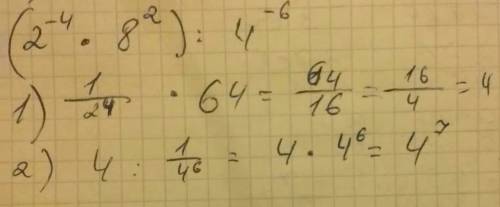 (2⁻⁴ · 8²) : 4⁻⁶
1) 1/2⁴ · 64 = 64/16 = 16/4 = 4
2) 4 : 1/4⁶ = 4 · 4⁶ = 4⁷